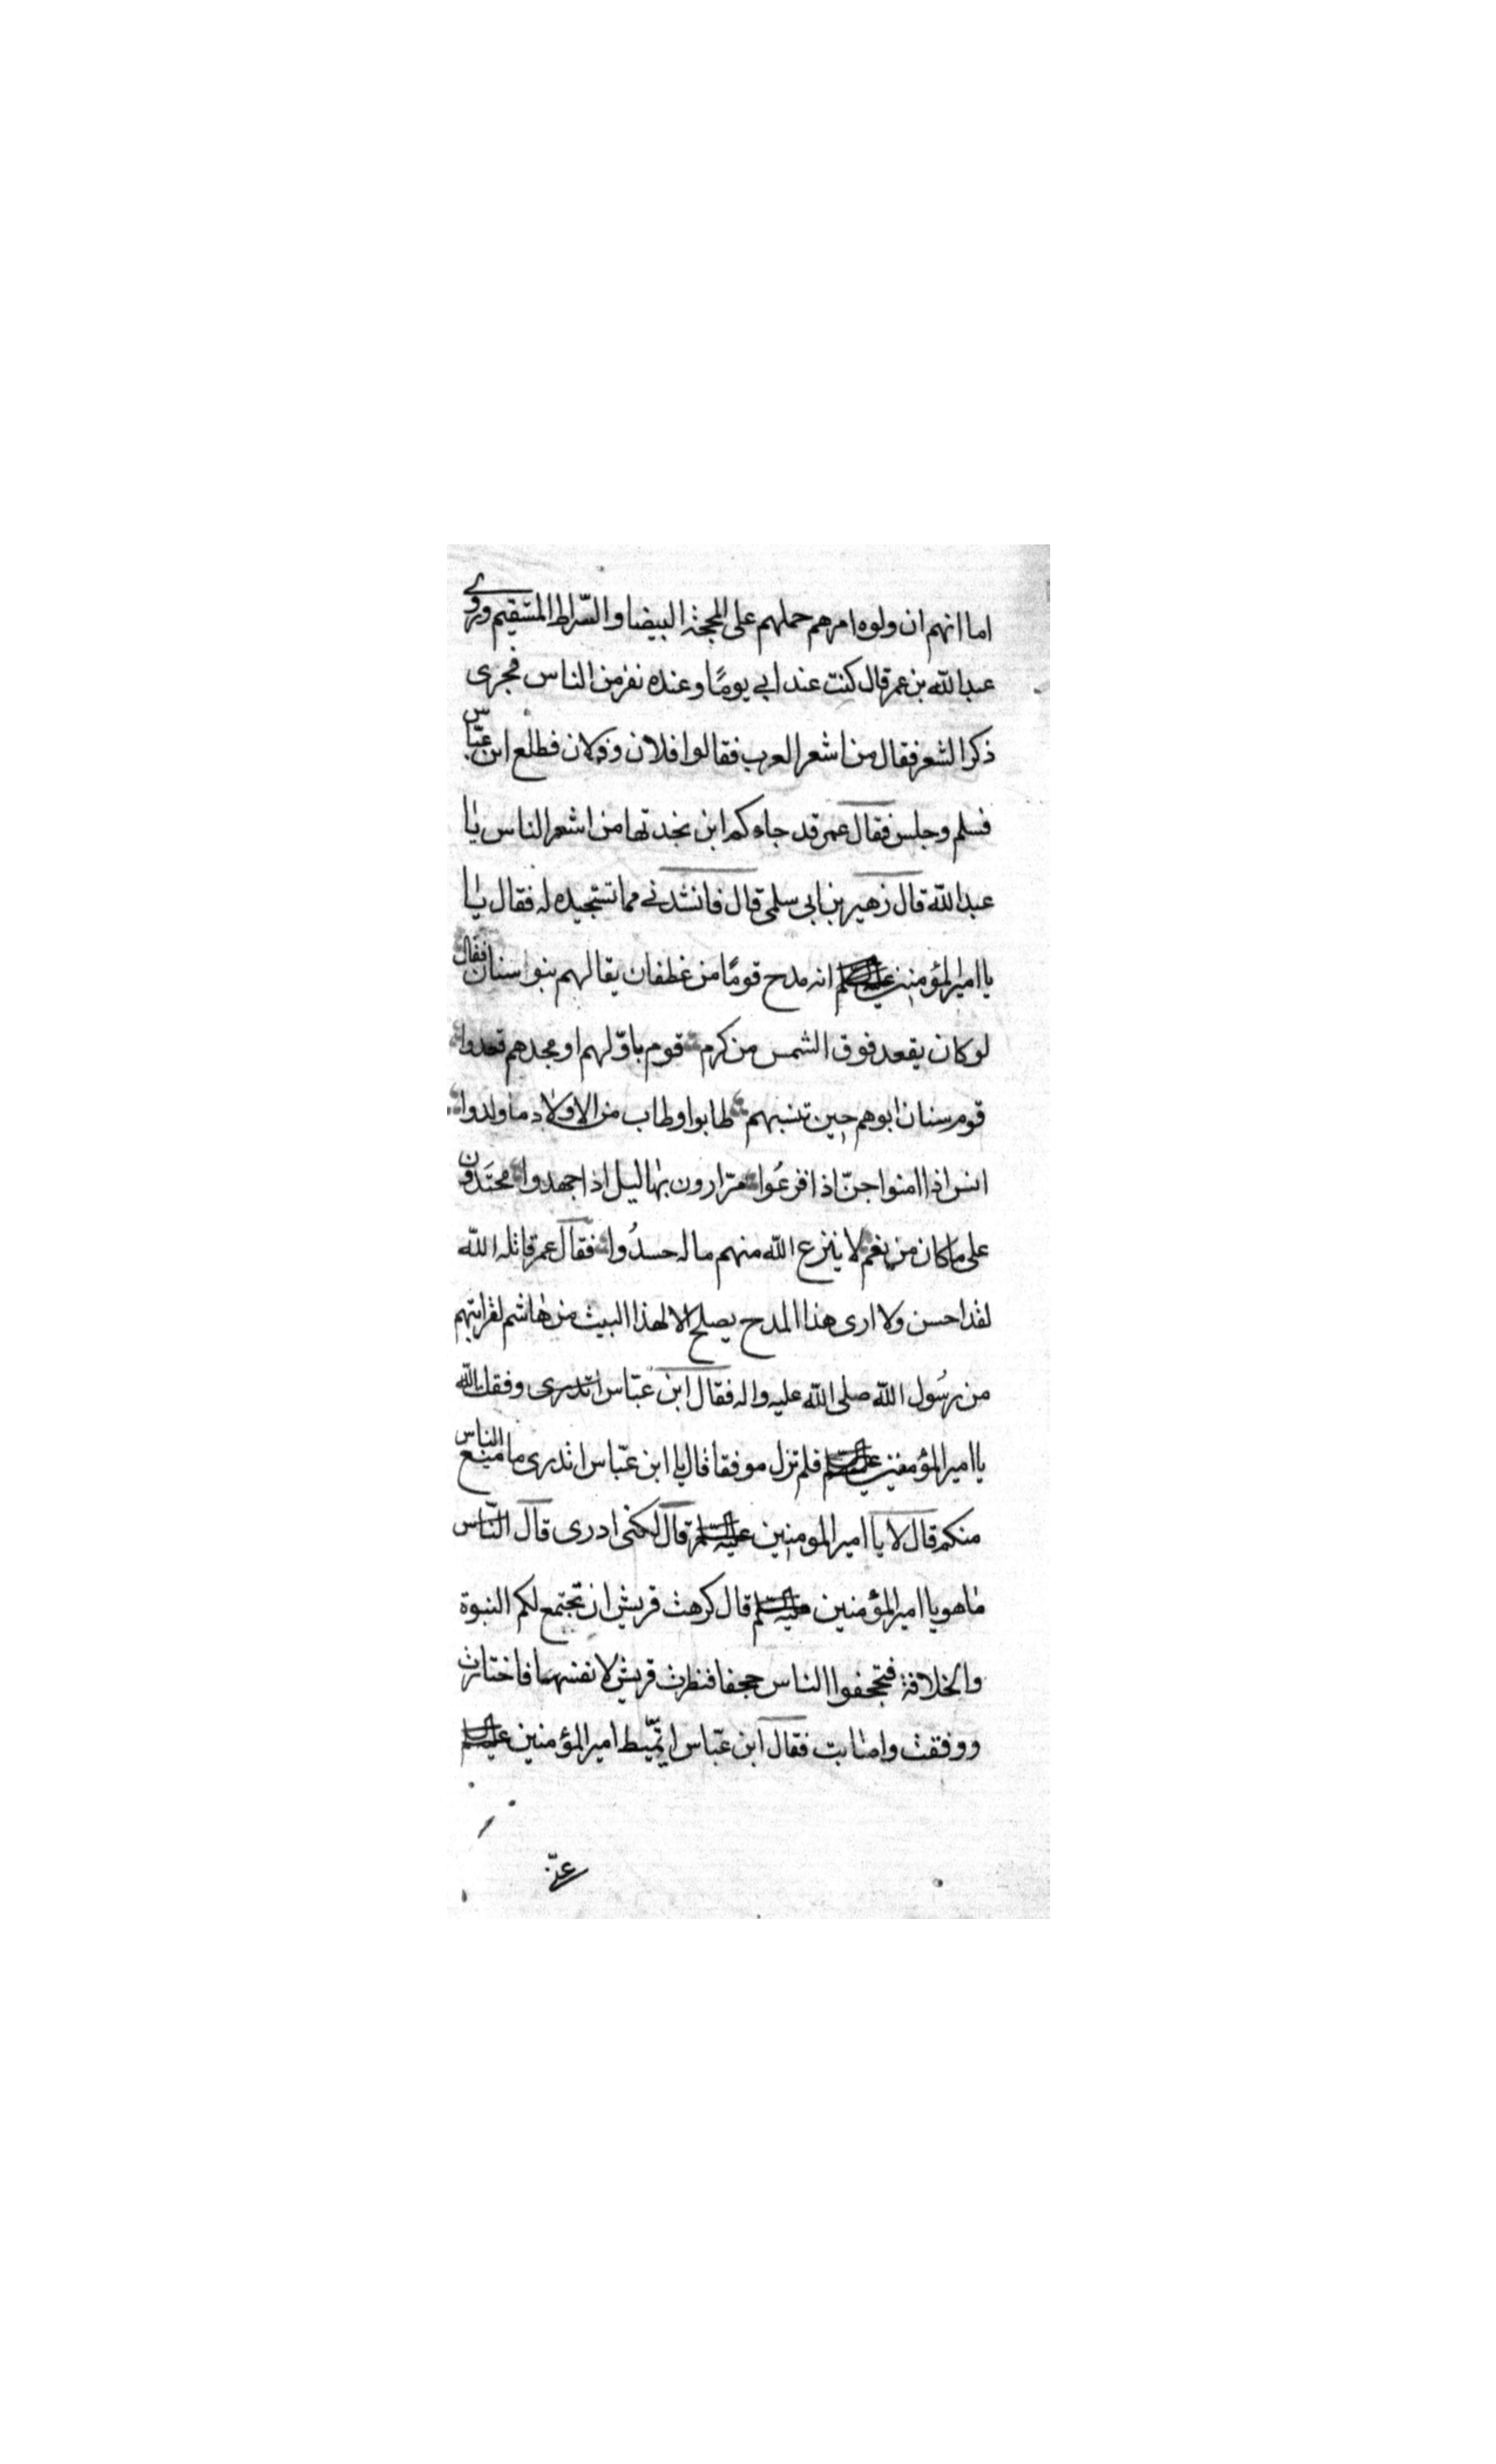 اما انهم ان ولوه امرهم حملهم على المحجة البيضا والسّراط المستقيم وروى
عبد الله بن عمر قال كنت عند ابي يومًا وعنده نفر من الناس فجرى
ذكر الشعر فقال من اشعر العرب فقالوا فلان وفلان فطلع ابن عبّاس
فسلم وجلس فقال عمر قد جاءكم ابن بجدتها من اشعر الناس يا
عبد الله قال زهير بن ابي سلمى قال فانشدني مما تستجيده له فقال يا
يا امير المؤمنين انه مدح قومًا من غطفان يقال لهم بنوا سنان فقال
لو كان يقعد فوق الشمس من كرم قوم باوّلهم او مجدهم قعدوا
قوم سنان ابوهم حين تنسبهم طابوا وطاب من الاولاد ما ولدوا
انس اذا امنوا جنّ اذا فزعُوا مرّارون بهاليل اذا جهدوا محسّدون
على ما كان من نعم لا ينزع الله منهم ما له حسدُوا فقال عمر قاتله الله
لقد احسن ولا ارى هذا المدح يصلح الا لهذا البيت من هاشم لقرابتهم
من رسُول الله صلى الله عليه واله فقال ابن عبّاس وفقك الله
يا امير المؤمنين فلم تزل موفقا قال يا ابن عبّاس اتدرى ما منع الناس
منكم قال لا يا امير المومنين قال لكنى ادرى قال
ما هو يا امير المؤمنين قال كرهت قريش ان تجتمع لكم النبوة
والخلافة فتجحفوا الناس جحفا فنظرت قريش لانفسها فاختارت
ووفقت واصابت فقال ابن عبّاس ايميط امير المؤمنين
عنّى